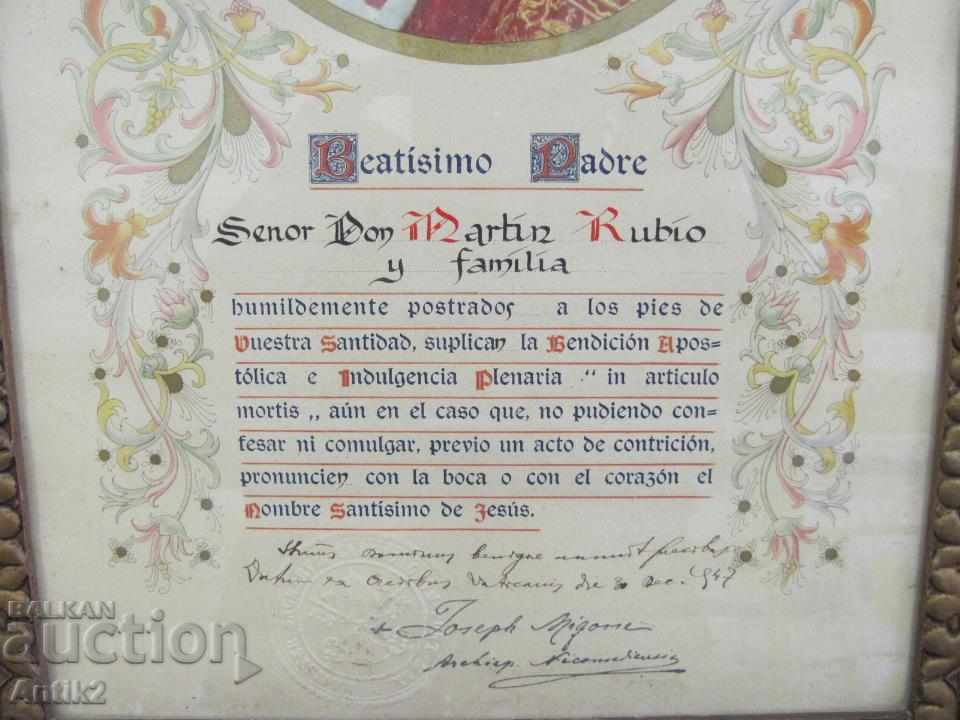 Beatísimo Padre
Señor Don Martin Rubio
y familia
humildemente postrados a los pies de
Vuestra Santidad, suplican la Bendición Apos=
tólica e Indulgencia Plenaria “ in articulo
mortis „ aún en el caso que, no pudiendo con=
fesar ni comulgar, previo un acto de contrición,
pronuncien con la boca o con el corazón el
Nombre Santísimo de Jesús.
benigne annuit precibus
Datum ex Aedibus Vaticanis die Dec. 1947
+ Joseph Migone
Archiep. Nicomediensis
BALKAN
auction
Antik2